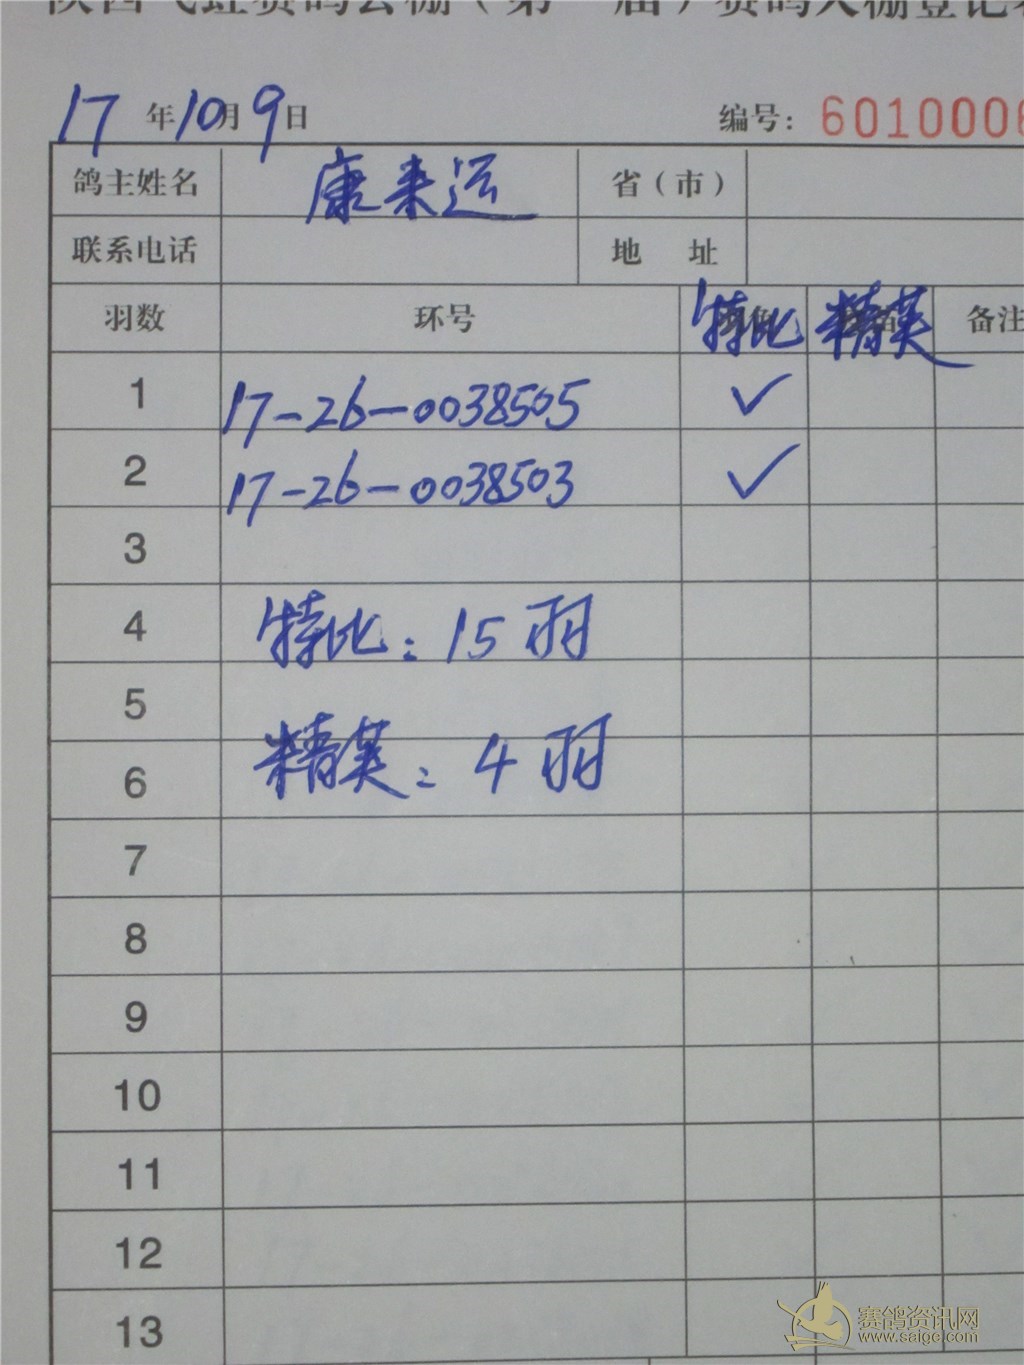 17年10月9日 编号: 6010006
鸽主姓名 康来运 省(市)
联系电话 地 址
羽数 环号 特比 精英 备注
1 17-26-0038505 ✓
2 17-26-0038503 ✓
3
4 特比: 15羽
5
6 精英: 4羽
7
8
9
10
11
12
13
赛鸽资讯网
www.saige.com